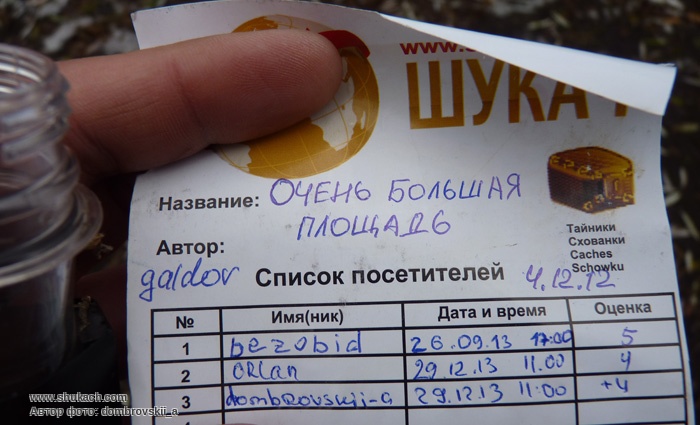 www.s
ШУКА
Название: ОЧЕНЬ БОЛЬШАЯ
ПЛОЩАДЬ
Тайники
Схованки
Caches
Schowku
Автор:
galdor Список посетителей 4.12.12
№ Имя(ник) Дата и время Оценка
1 bezobid 26.09.13 17:00 5
2 ORLan 29.12.13 11.00 4
3 dombrovskij-a 29.12.13 11:00 +4
www.shukach.com
Автор фото: dombrovskii_a